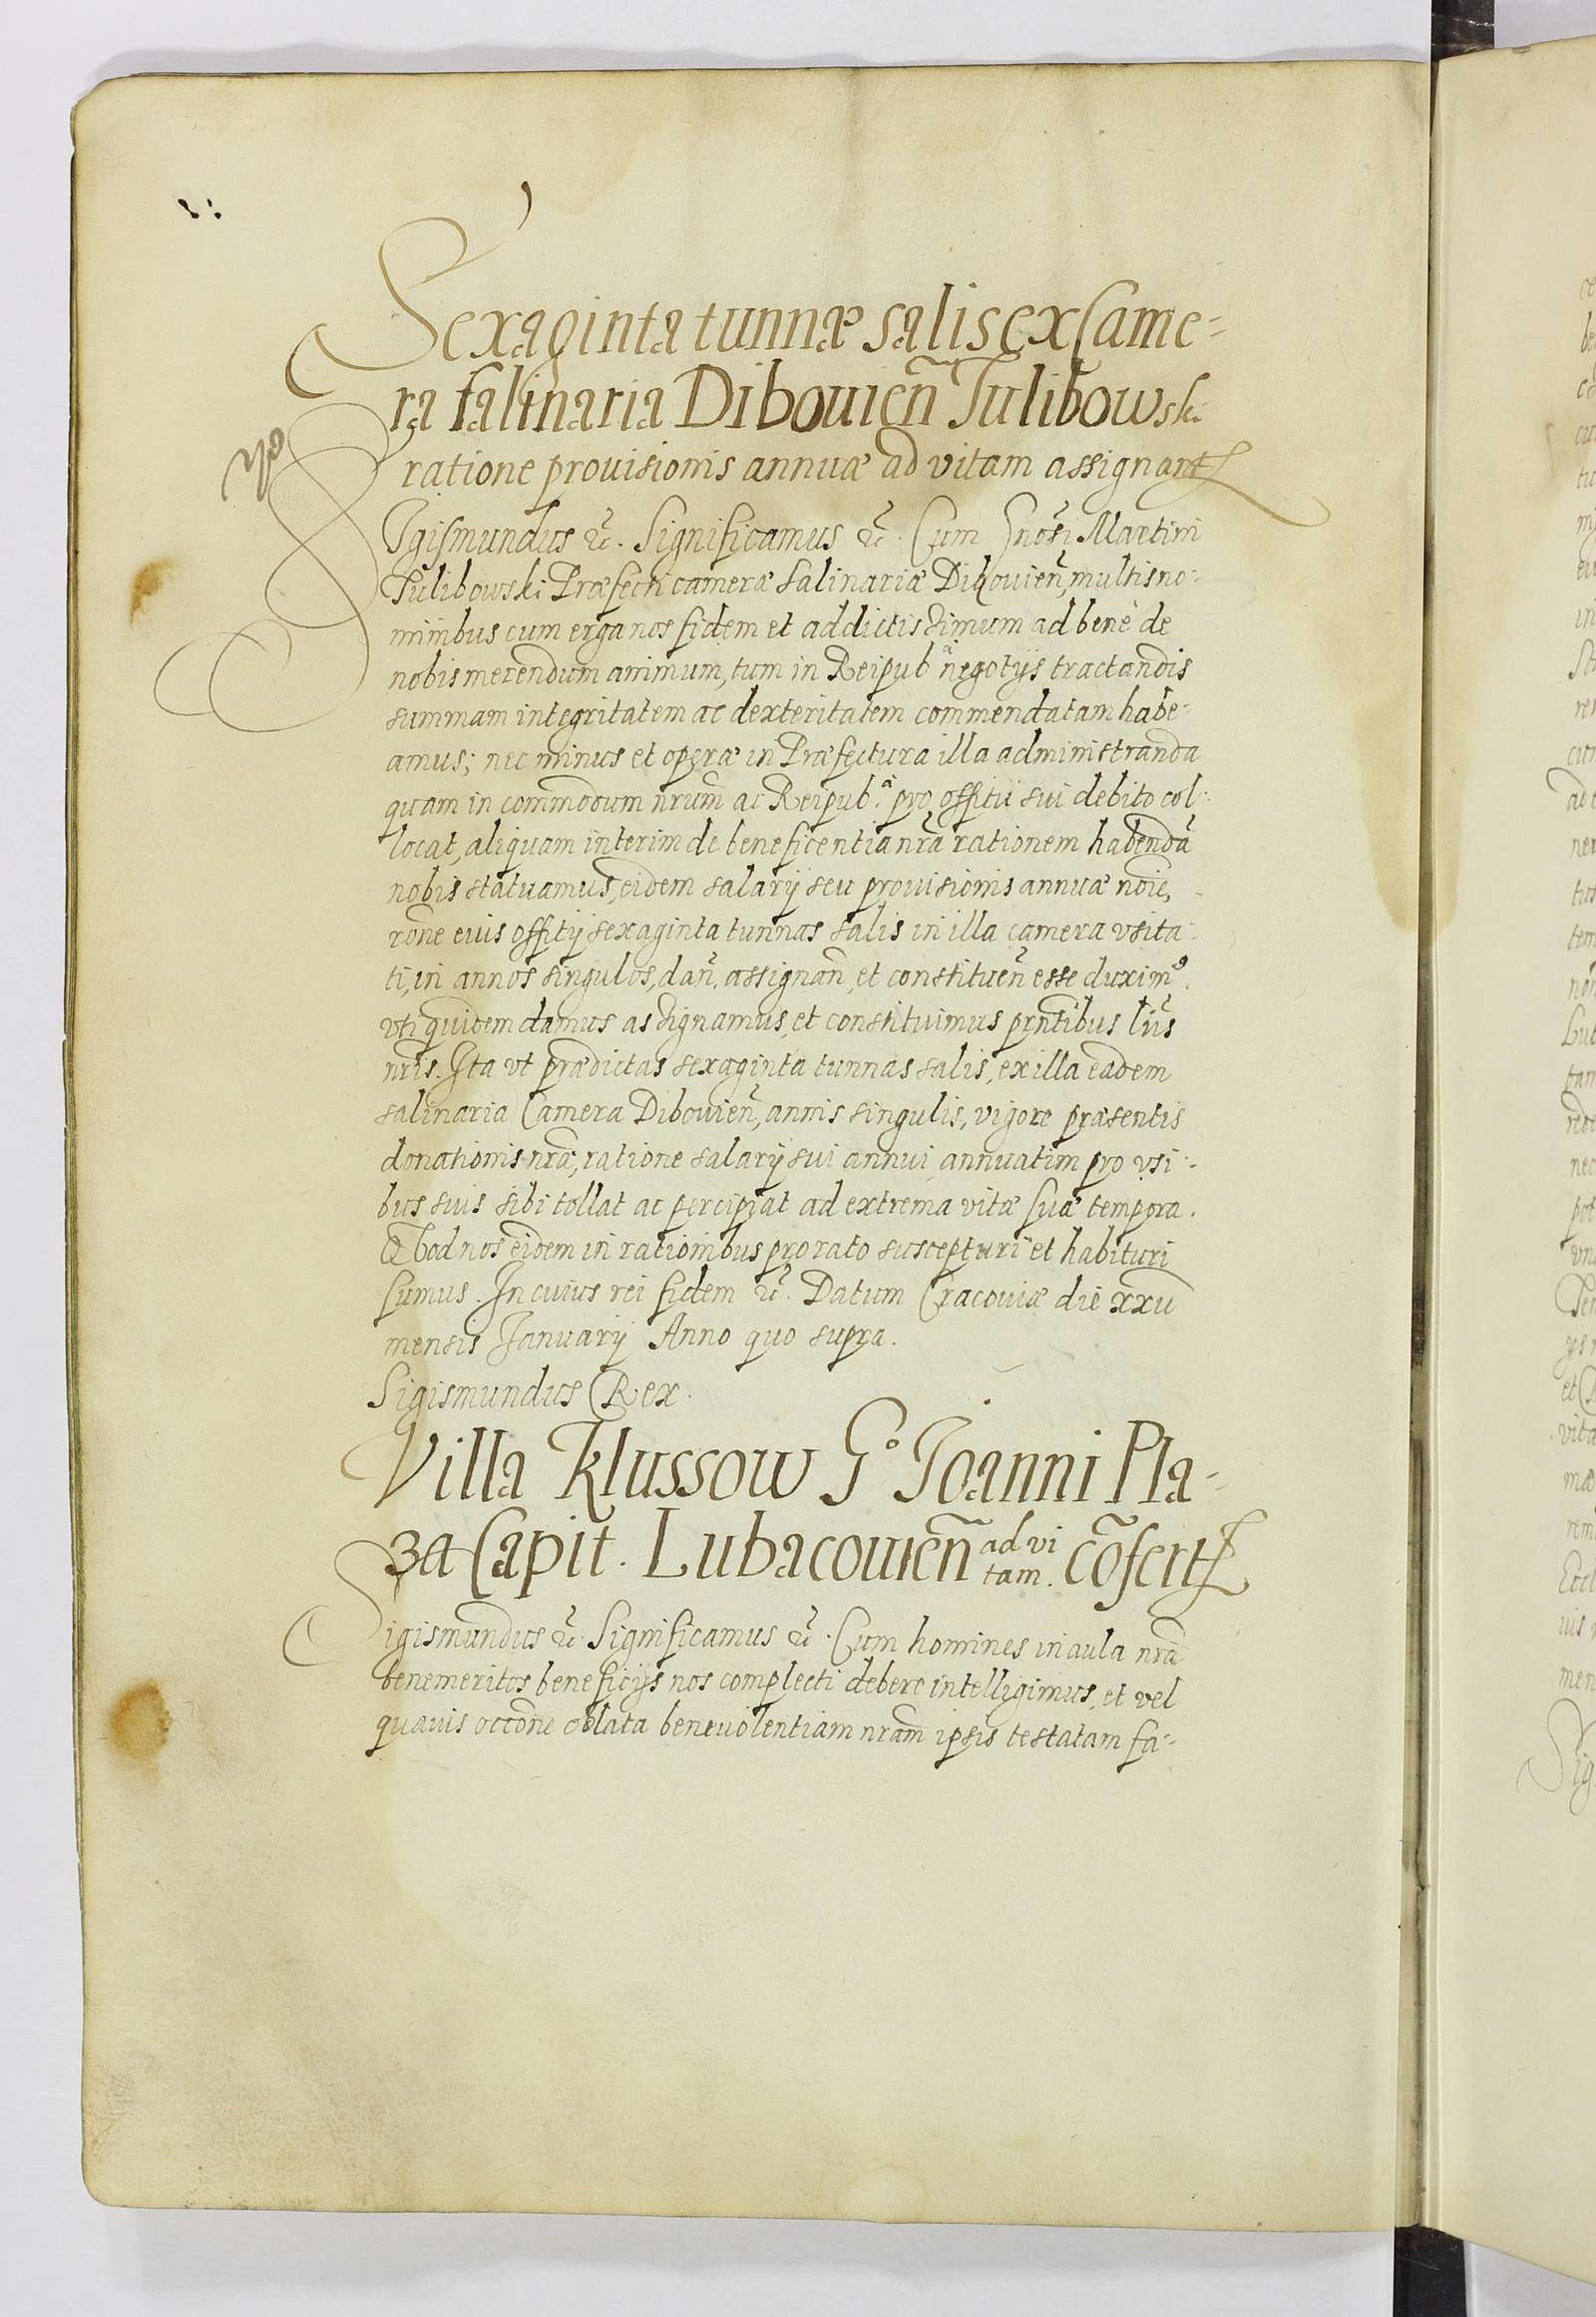 Sexaginta tunnæ salis ex Came-
ra salinaria Dibouien̄ Tulibowski
ratione prouisionis annuæ ad vitam assignant
Igismundus ꝛc̃. Significamus ꝛc̃. Cum Gnosi Martini
Tulibowski Præfecti cameræ salinariæ Dibouien̄, multis no-
minibus cum erga nos fidem et addictissimum ad bene de
nobis merendum animum, tum in Reipubᵃ negotijs tractandis
summam integritatem ac dexteritatem commendatam habe-
amus; nec minus et operæ in Præfectura illa administranda
quam in commodum nrum̄ ac Reipub.ᵃ pro offitii sui debito col-
locat, aliquam interim de beneficentia nrā rationem habendā
nobis statuamus, eidem salarij seu prouisionis annuæ noīe,
rōne eius offitij sexaginta tunnas salis in illa camera vsita-
ti, in annos singulos, dan̄. assignan̄, et constituen̄ esse duximꝰ.
vti quidem damus assignamus, et constituimus prn̄tibus lr̄is
nrīs. Ita vt prædictas sexaginta tunnas salis, ex illa eadem
salinaria Camera Dibouien̄, annis singulis, vigore præsentis
donationis nrǣ, ratione salarij sui annui annuatim pro vsi-
bus suis sibi tollat ac percipiat ad extrema vitæ suæ tempora.
Qvod nos eidem in rationibus pro rato suscepturi et habituri
sumus. In cuius rei fidem ꝛc̃. Datum Cracouiæ die xxv
mensis Ianuarij Anno quo supra.
Sigismundus Rex.
Villa Klussow G° Ioanni Pla-
za Capit. Lubacouien̄ ad vi
tam. cōfert
Sigismundus ꝛc̃. Significamus ꝛc̃. Cum homines in aula nrā
benemeritos beneficijs nos complecti debere intelligimus, et vel
quauis occōne oblata beneuolentiam nram̄ ipsis testatam fa-